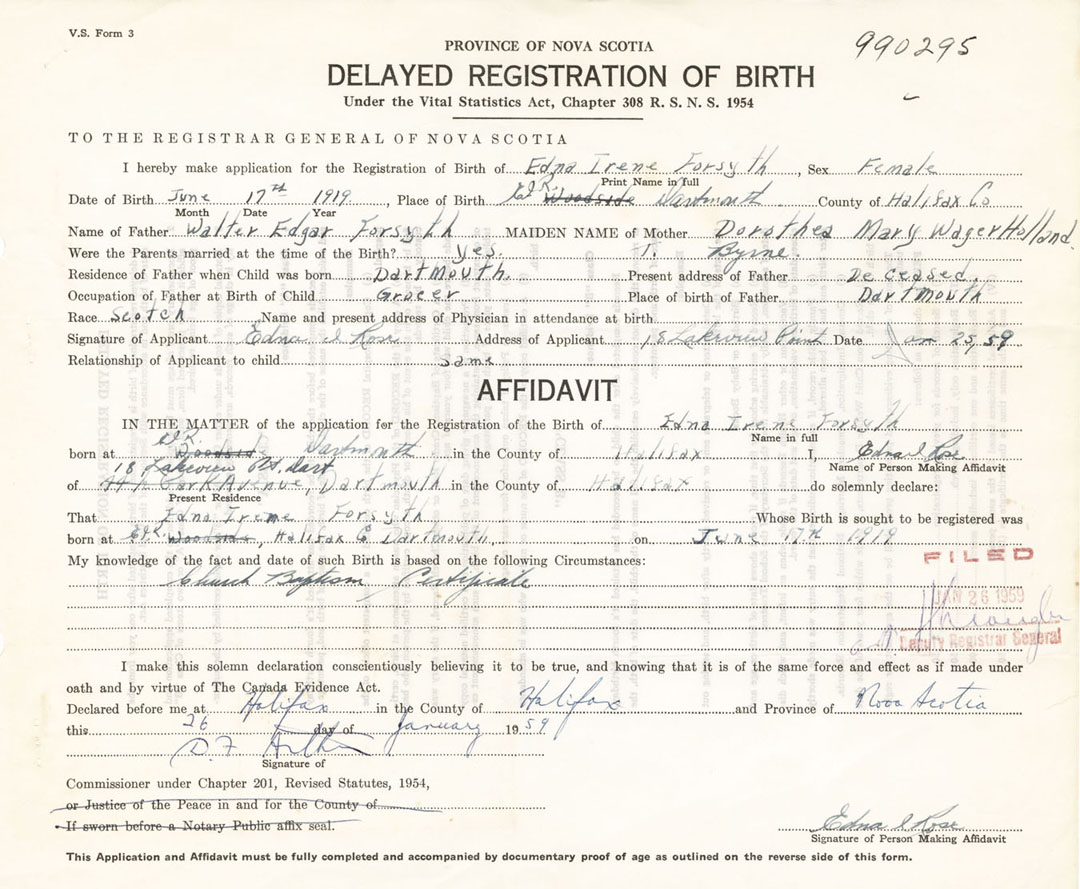 V.S. Form 3
990295
PROVINCE OF NOVA SCOTIA
DELAYED REGISTRATION OF BIRTH
Under the Vital Statistics Act, Chapter 308 R. S. N. S. 1954
TO THE REGISTRAR GENERAL OF NOVA SCOTIA
I hereby make application for the Registration of Birth of Edna Irene Forsyth, Sex Female
Print Name in full
Date of Birth June 17th 1919, Place of Birth E.I.R. Woodside Dartmouth County of Halifax Co
Month Date Year
Name of Father Walter Edgar Forsyth MAIDEN NAME of Mother Dorothea Mary Wager Holland
Were the Parents married at the time of the Birth? yes. T. Byrne.
Residence of Father when Child was born Dartmouth. Present address of Father Deceased.
Occupation of Father at Birth of Child Grocer Place of birth of Father Dartmouth
Race Scotch Name and present address of Physician in attendance at birth
Signature of Applicant Edna I Rose Address of Applicant 18 Lakeview Point Date Jan 25, 59
Relationship of Applicant to child same
AFFIDAVIT
IN THE MATTER of the application for the Registration of Birth of Edna Irene Forsyth
Name in full
E.I.R.
born at Woodside Dartmouth in the County of Halifax I, Edna I Rose
18 Lakeview Pt. Dart
Name of Person Making Affidavit
of Park Avenue, Dartmouth in the County of Halifax do solemnly declare:
Present Residence
That Edna Irene Forsyth Whose Birth is sought to be registered was
born at E.I.R. Woodside, Halifax Co Dartmouth, on June 17th 1919
My knowledge of the fact and date of such Birth is based on the following Circumstances:
Church Baptism Certificate
FILED
JAN 26 1959
Deputy Registrar General
I make this solemn declaration conscientiously believing it to be true, and knowing that it is of the same force and effect as if made under
oath and by virtue of The Canada Evidence Act.
Declared before me at Halifax in the County of Halifax and Province of Nova Scotia
this 26 day of January 1959
D.F.
Signature of
Commissioner under Chapter 201, Revised Statutes, 1954,
or Justice of the Peace in and for the County of
If sworn before a Notary Public affix seal.
Edna I Rose
Signature of Person Making Affidavit
This Application and Affidavit must be fully completed and accompanied by documentary proof of age as outlined on the reverse side of this form.